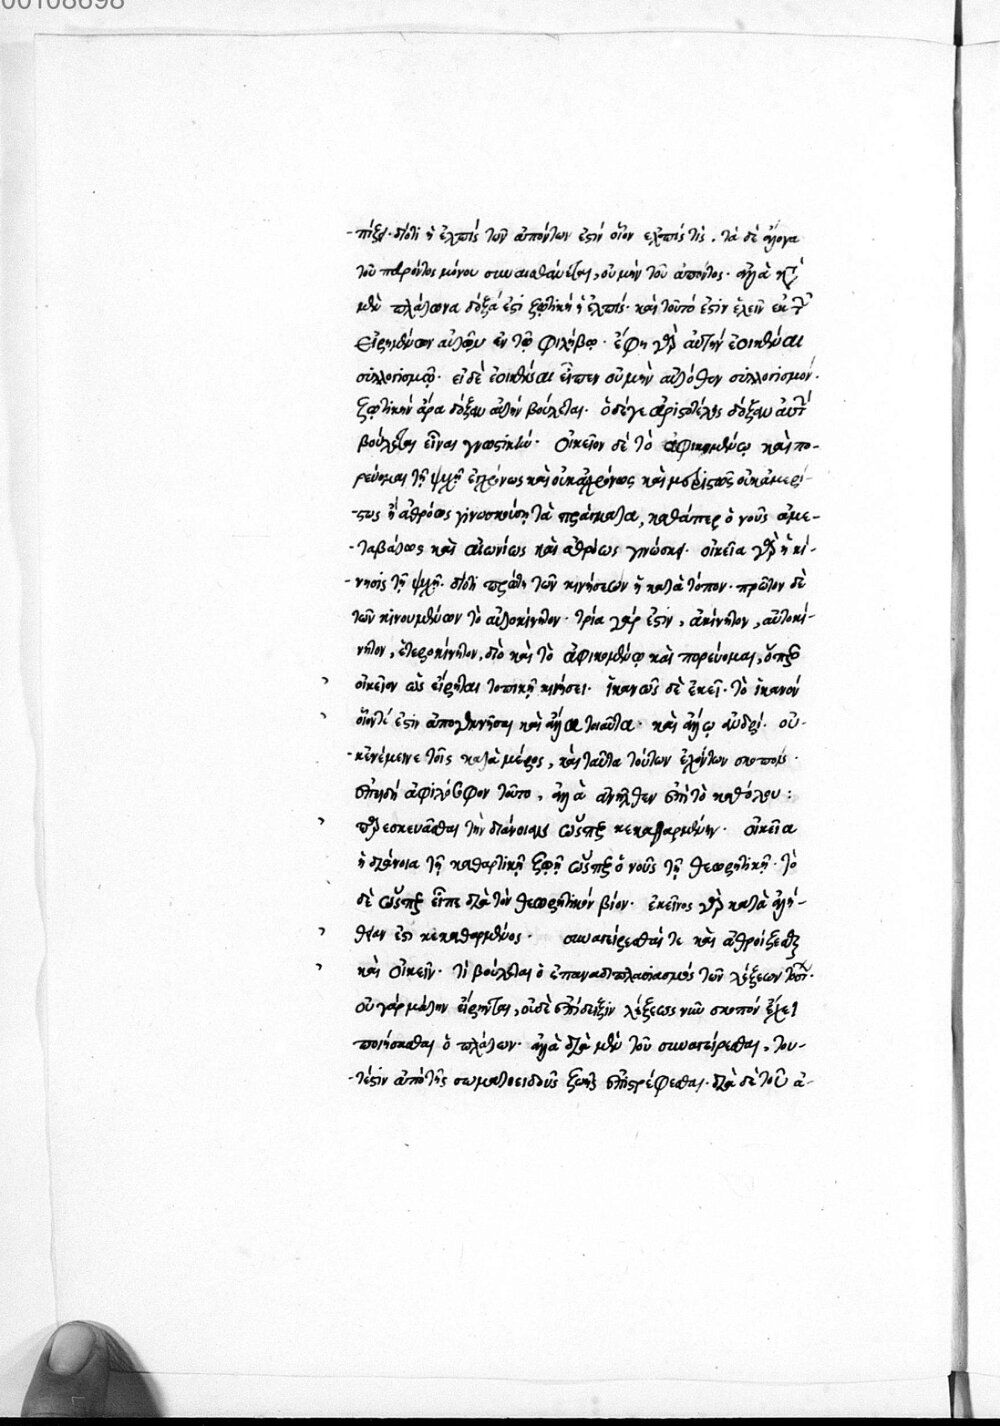 00108698
-πίζει· διότι ἡ ἐλπὶς τῶν ἀπόντων ἐστὶν οἷον ἐλπίς τις. τὰ δὲ ἄλογα
τοῦ παρόντος μόνου συναισθάνεται, οὐ μὴν τοῦ ἀπόντος· ἀλλὰ κατὰ
μὲν πλάτωνα δόξά ἐστι ζωτικὴ ἡ ἐλπίς· καὶ τοῦτό ἐστιν ἑλεῖν ἐκ τῶν
εἰρημένων αὐτῷ ἐν τῷ φιλήβῳ· ἔφη γὰρ αὐτὴν ἐοικέναι
συλλογισμῷ· εἰ δὲ ἐοικέναι εἶπεν οὐ μὴν αὐτόθεν συλλογισμόν.
ζωτικὴν ἄρα δόξαν αὐτὴν βούλεται. ὁ δέ γε ἀριστοτέλης δόξαν αὐτὴν
βούλεται εἶναι γνωστικήν· οἰκεῖον δὲ τὸ ἀφικομένῳ καὶ πο-
ρεύομαι τῇ ψυχῇ ἐγχρόνως καὶ οὐκ ἀχρόνως καὶ μεριστῶς οὐκ ἀμερί-
-στως ἢ ἀθρόως γινωσκούσῃ τὰ πράγματα, καθάπερ ὁ νοῦς ἀμε-
-ταβάτως καὶ αἰωνίως καὶ ἀθρόως γινώσκει. οἰκεία γὰρ ἡ κί-
-νησις τῇ ψυχῇ. διότι πρώτη τῶν κινήσεων ἡ κατὰ τόπον· πρῶτον δὲ
τῶν κινουμένων τὸ αὐτοκίνητον· τρία γάρ ἐστιν, ἀκίνητον, αὐτοκί-
νητον, ἑτεροκίνητον, διὸ καὶ τὸ ἀφικομένῳ καὶ πορεύομαι, ὅπερ
οἰκεῖον ὡς εἴρηται τοπικῇ κινήσει. ἱκανῶς δὲ ἐκεῖ· τὸ ἱκανόν
οἷόν τέ ἐστιν ἀποκτνῆσαι καὶ ἄλλα τοιαῦτα· καὶ ἄλλῳ ἀνδρί. οὐ-
-κ ἐνέμεινε τοῖς κατὰ μέρος, καὶ ταῦτα τούτων ἐχόντων σκοποῖς·
ἐπειδὴ ἀφιλόσοφον τοῦτο, ἀλλὰ ἀνῆλθεν ἐπὶ τὸ καθόλου:
παρεσκευᾶσθαι τὴν διάνοιαν ὥσπερ κεκαθαρμένην· οἰκεῖα
ἡ διάνοια τῇ καθαρτικῇ ζωῇ ὥσπερ ὁ νοῦς τῇ θεωρητικῇ· τὸ
δὲ ὥσπερ εἶπε διὰ τὸν θεωρητικὸν βίον· ἐκεῖνος γὰρ κατὰ ἀλή-
θειαν ἐστὶ κεκαθαρμένος· συναγείρεσθαί τε καὶ ἀθροίζεσθαι
καὶ οἰκεῖν· τί βούλεται ὁ ἐπαναδιπλασιασμὸς τῶν λέξεων
οὐ γὰρ μάτην εἴρηται, οὐδὲ ἐπίδειξιν λέξεως νῦν σκοπὸν ἔχει
ποιήσασθαι ὁ πλάτων· ἀλλὰ διὰ μὲν τοῦ συναγείρεσθαι, του-
-τέστιν ἀπὸ τῆς σωματοειδοῦς ζωῆς ἐπιστρέφεσθαι. διὰ δὲ τοῦ ἀ-